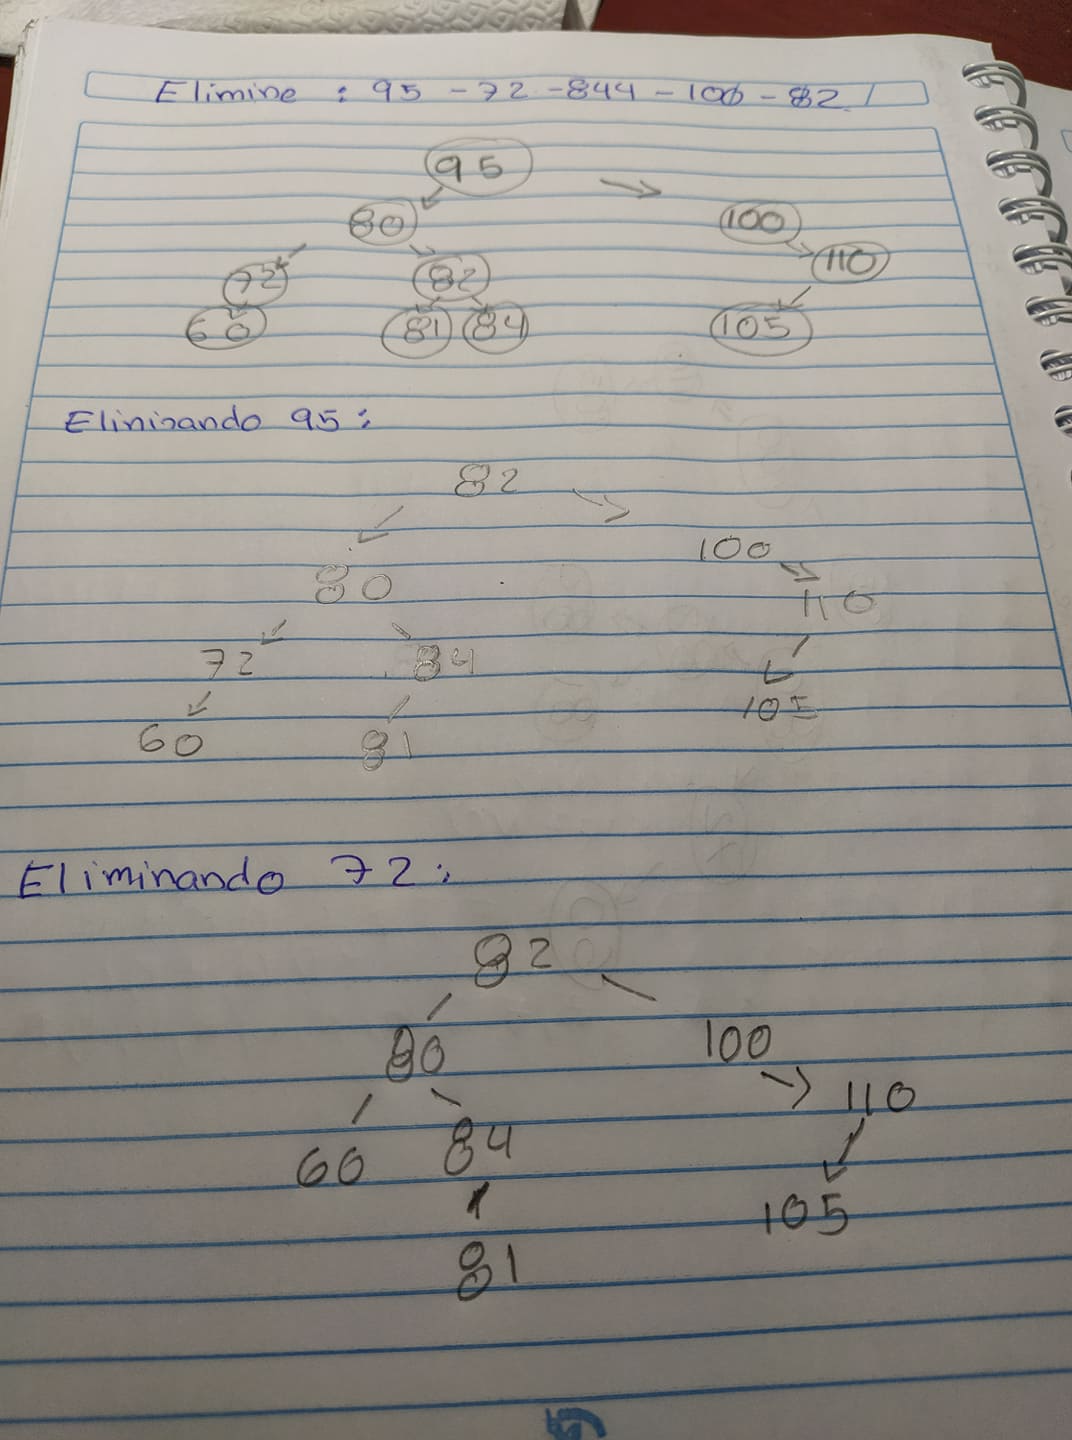 Elimine : 95 - 72 - 844 - 100 - 82
95
80 100
72 82 110
60 81 84 105
Elinizando 95:
82
100
80 110
72 84
105
60 81
Eliminando 72:
82
80 100
110
60 84
105
81